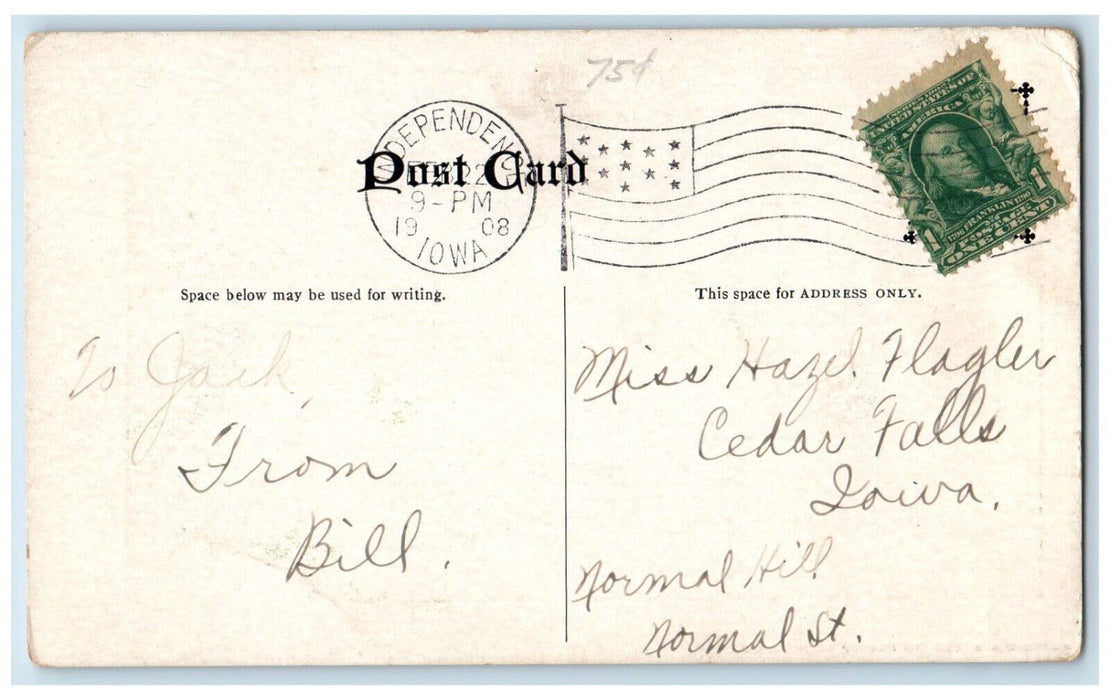 75¢
INDEPENDENCE
FEB 22
9-PM
19 08
IOWA
Post Card
UNITED STATES OF
AMERICA
1706 FRANKLIN 1790
POSTAGE
1 ONE CENT 1
Space below may be used for writing.
This space for ADDRESS ONLY.
To Jack,
From
Bill.
Miss Hazel Flagler
Cedar Falls
Iowa.
Normal Hill
Normal St.